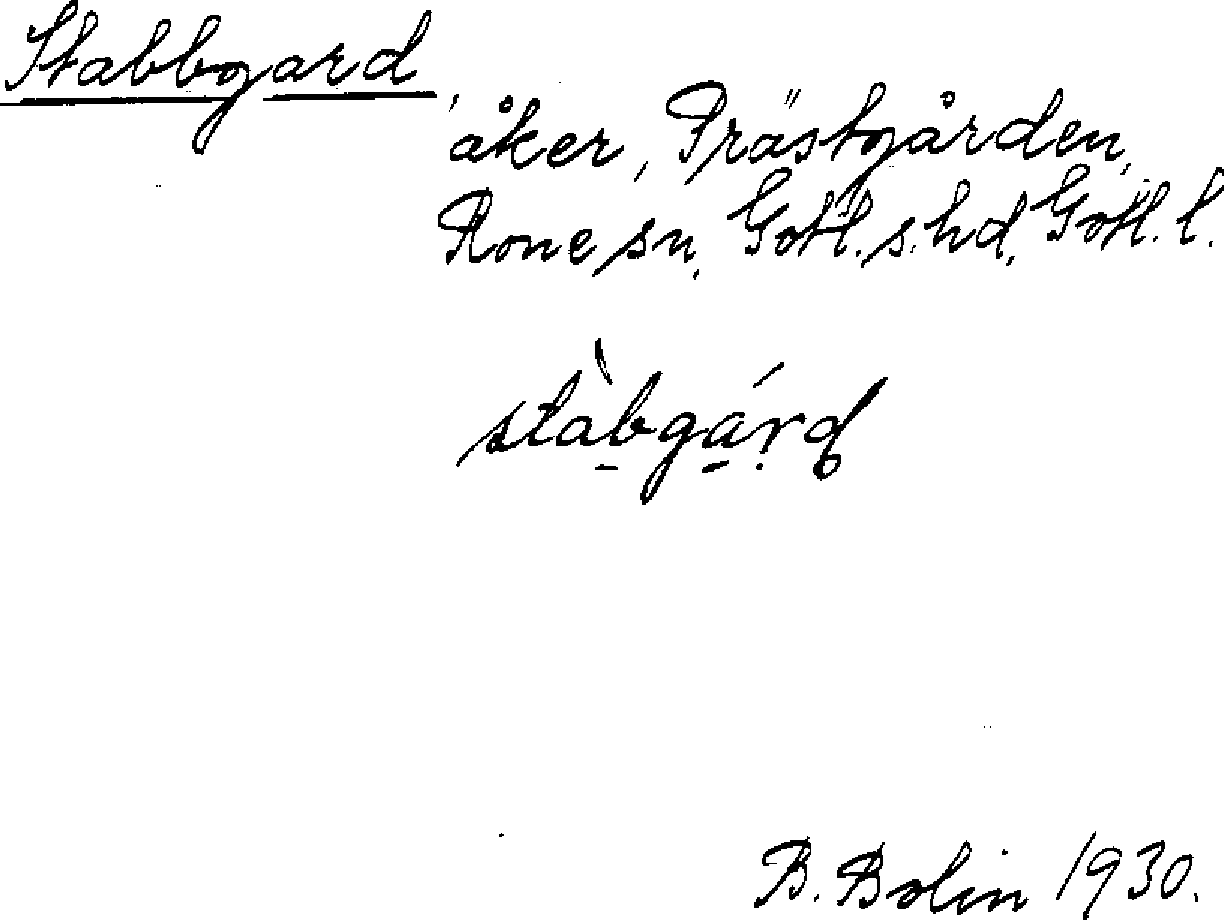 Stabbgard
åker, Prästgården,
Rone sn, Gotl. s. hd, Gotl. l.
stàbgárd
B. Bolin 1930.